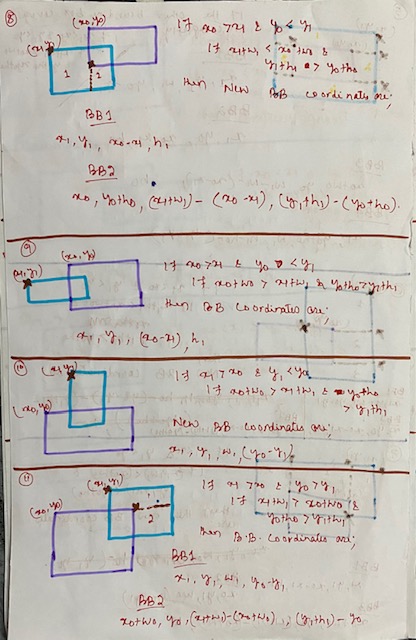 ⑧
(x1, y1)
(x0, y0)
1
2
If x0 > x1 & y0 < y1
If x1+w1 < x0+w0 &
y1+h1 > y0+h0
then New BB coordinates are;
BB1
x1, y1, x0-x1, h1
BB2
x0, y0+h0, (x1+w1) - (x0-x1), (y1+h1) - (y0+h0).
⑨
(x0, y0)
(x1, y1)
If x0 > x1 & y0 < y1
If x0+w0 > x1+w1 & y0+h0 > y1+h1
then BB coordinates are;
x1, y1, (x0-x1), h1
⑩
(x1, y1)
(x0, y0)
If x1 > x0 & y1 < y0
If x0+w0 > x1+w1 & y0+h0
> y1+h1
New BB coordinates are;
x1, y1, w1, (y0-y1)
⑪
(x1, y1)
(x0, y0)
1
2
If x1 > x0 & y0 > y1
If x1+w1 > x0+w0 &
y0+h0 > y1+h1
then B.B. coordinates are;
BB1
x1, y1, w1, y0-y1
BB2
x0+w0, y0, (x1+w1)-(x0+w0), (y1+h1) - y0